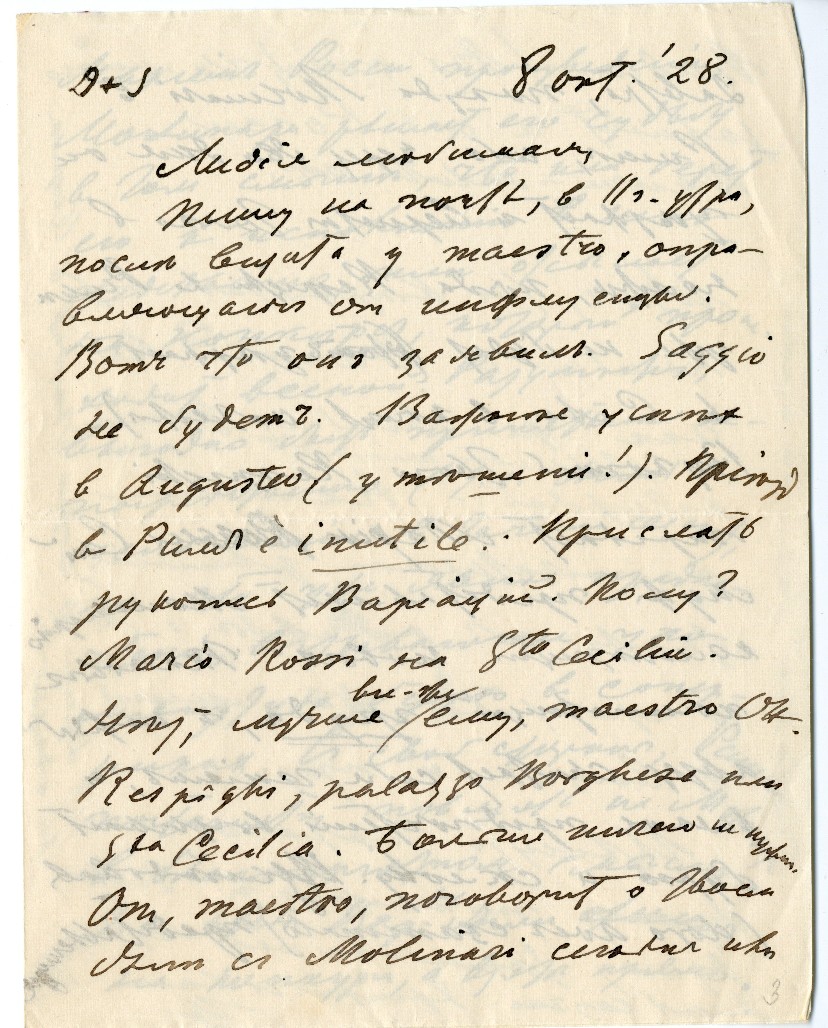 8 окт. '28.
Лидія любимая,
Пишу на почтѣ, в 11 ч. утра,
послѣ визита у maestro, опра-
вляющагося от инфлуенцы.
Вотъ что онъ заявилъ. Saggio
не будетъ. Вашъ успѣх
в Augusteo (у Molinari!). Пріѣзд
в Римъ è inutile. Прислать
рукопись Варіацій. Кому?
Mario Rossi на Sta Cecilia.
Нѣт, лучше все-же ему, maestro Ott.
Respighi, palazzo Borghese или
Sta Cecilia. Больше ничего не нужно.
Он, maestro, поговорит о
с Molinari сегодня или
3